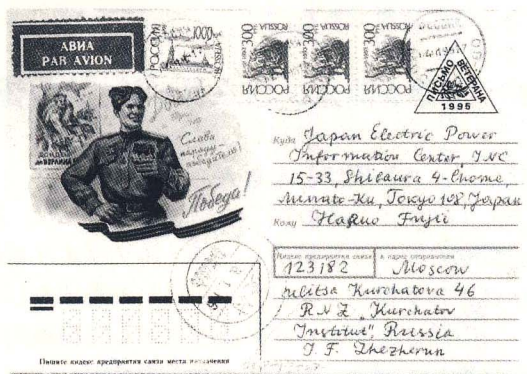 АВИА
PAR AVION
РОССИЯ 1000
ROSSIJA
300 ROSSIJA
РОССИЯ
300 ROSSIJA
РОССИЯ
300 ROSSIJA
РОССИЯ
ПИСЬМО ВЕТЕРАНА
1995
Слава
народу-
победителю!
Победа!
Куда Japan Electric Power
Information Center, INC
15-33, Shibaura 4-Chome,
Minato-Ku, Tokyo 108, Japan
Кому Haruo Fujii
Индекс предприятия связи и адрес отправителя
123182 Moscow
ulitsa Kurchatova 46
RNZ „Kurchatov
Institut", Russia
I. F. Zhezherun
Пишите индекс предприятия связи места назначения